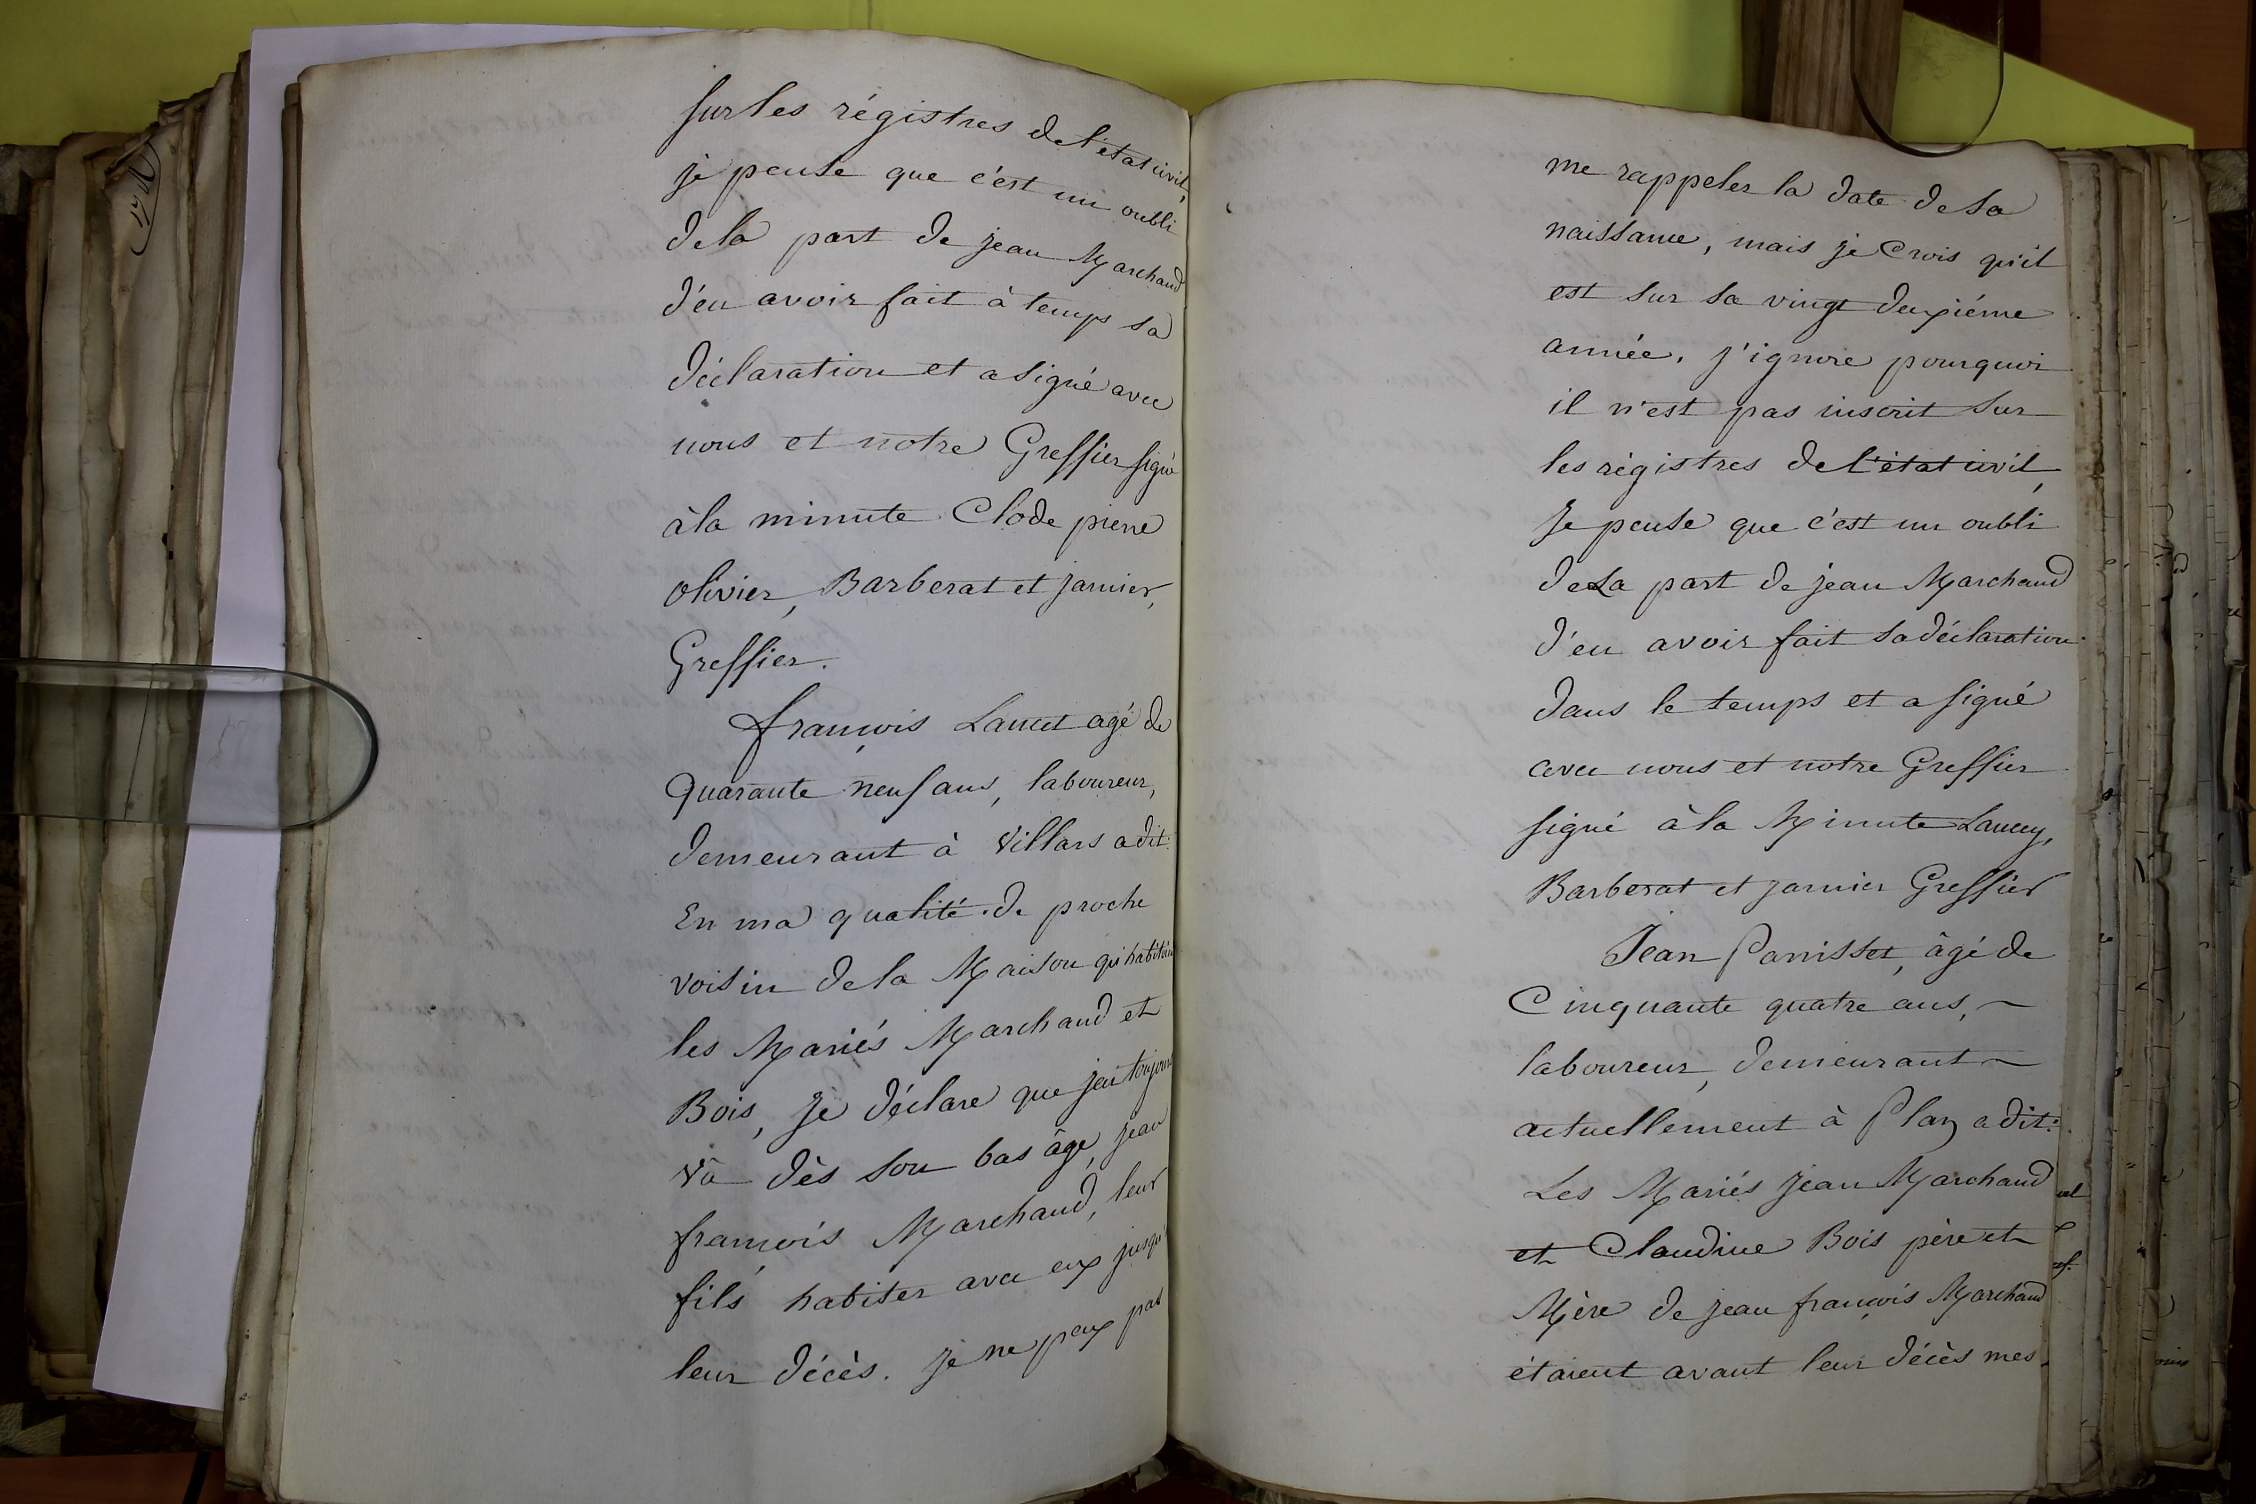 sur les régistres de l'état civil,
je pense que c'est un oubli
de la part de jean Marchand
d'en avoir fait à temps sa
déclaration et a signé avec
nous et notre Greffier signé
à la minute Clode pierre
olivier, Barberat et janier,
Greffier.
françois Lancet agé de
quarante neuf ans, laboureur,
demeurant à Villars a dit:
En ma qualité de proche
voisin de la Maison qu'habitaient
les Mariés Marchand et
Bois, je déclare que j'en toujours
vû dès son bas âge, jean
françois Marchand, leur
fils habiter avec eux jusqu'à
leur décès. je ne peux pas
me rappeler la date de sa
naissance, mais je crois qu'il
est sur sa vingt deuxiéme
année. j'ignore pourquoi
il n'est pas inscrit sur
les régistres de l'état civil,
je pense que c'est un oubli
de La part de jean Marchand
d'en avoir fait sa déclaration
dans le temps et a signé
avec nous et notre Greffier
signé à la Minute Lancey,
Barberat et janier Greffier
Jean Panisset, âgé de
Cinquante quatre ans,
laboureur, demeurant
actuellement à Plan a dit:
Les Mariés jean Marchand
et Claudine Bois père et
Mère de jean françois Marchand
étaient avant leur décès mes